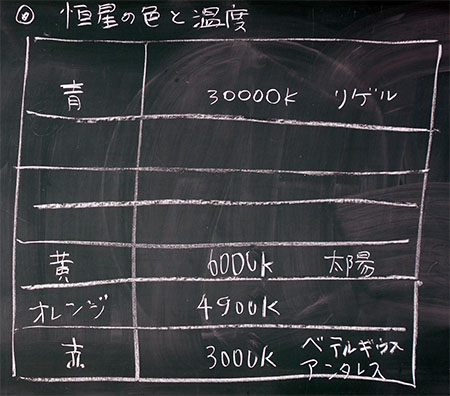 ◎ 恒星の色と温度
青 30000k リゲル
黄 6000k 太陽
オレンジ 4900k
赤 3000k ベテルギウス
アンタレス